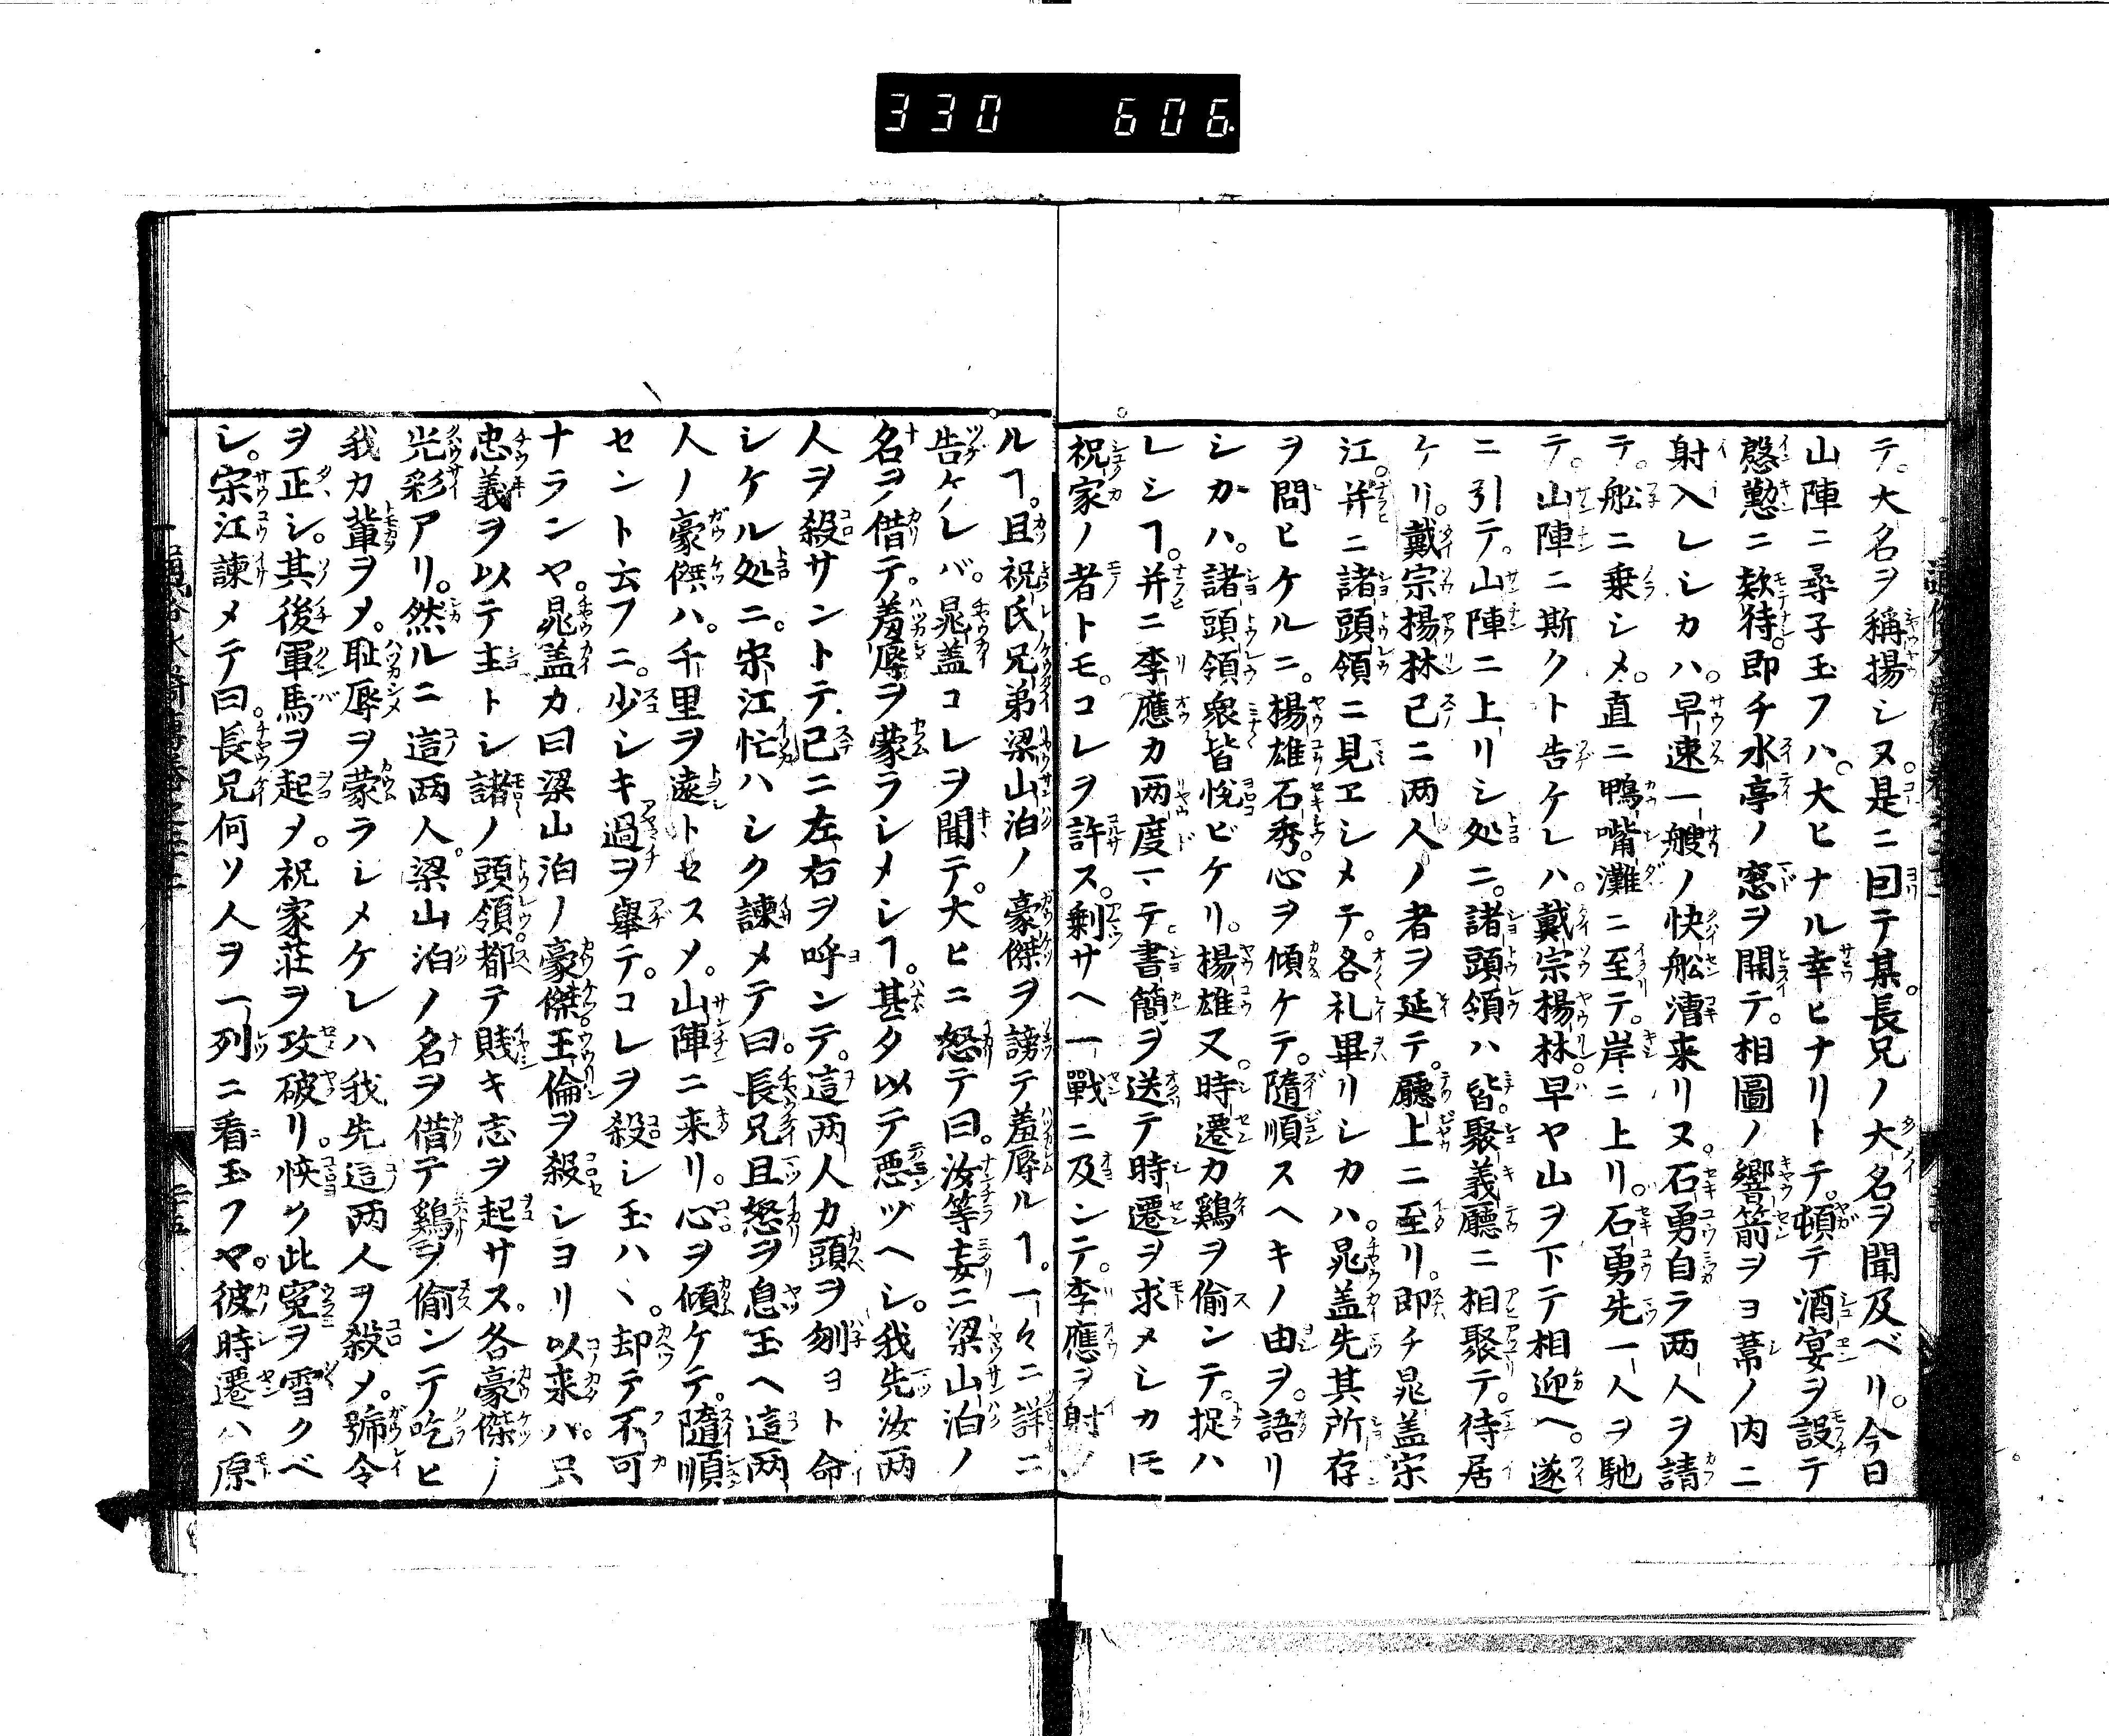 330 606.
テ。大名ヲ稱揚シヌ。是ニ因テ某。長兄ノ大名ヲ聞及ベリ。今日
山陣ニ尋子玉フハ。大ヒナル幸ヒナリトテ。頓テ酒宴ヲ設テ
慇懃ニ欵待。即チ水亭ノ窓ヲ開テ。相圖ノ響箭ヲヨ葦ノ内ニ
射入レシカハ。早速一艘ノ快舩漕来リヌ。石勇自ラ两人ヲ請
テ。舩ニ乗シメ。直ニ鴨嘴灘ニ至テ。岸ニ上リ。石勇先一人ヲ馳
テ。山陣ニ斯クト告ケレハ。戴宗楊林。早ヤ山ヲ下テ相迎ヘ。遂
ニ引テ。山陣ニ上リシ処ニ。諸頭領ハ皆聚義廳ニ相聚テ。待居
ケリ。戴宗揚林已ニ两人ノ者ヲ延テ。廳上ニ至リ。即チ晁盖宋
江。并ニ諸頭領ニ見ヱシメテ。各礼畢リシカハ。晁盖先其所存
ヲ問ヒケルニ。楊雄石秀。心ヲ傾ケテ。隨順スヘキノ由ヲ。語リ
シカハ。諸頭領衆皆悦ビケリ。揚雄又。時遷カ鷄ヲ偷ンテ。捉ハ
レシヿ。并ニ李應カ两度マテ。書簡ヲ送テ時遷ヲ求メシカ𪜈
祝家ノ者トモ。コレヲ許ス。剰サヘ一戰ニ及ンテ。李應ヲ射ノ
ルヿ。且祝氏兄弟梁山泊ノ豪傑ヲ謗テ羞辱ルヿ。一々ニ詳ニ
告ケレバ。晁盖コレヲ聞テ。大ヒニ怒テ曰。汝等妄ニ梁山泊ノ
名ヲ借テ。羞辱ヲ蒙ラシメシヿ。甚タ以テ悪ヅヘシ。我先汝两
人ヲ殺サントテ。已ニ左右ヲ呼ンテ。這两人カ頭ヲ刎ヨト命
シケル処ニ。宋江忙ハシク諫メテ曰。長兄且怒ヲ息玉ヘ這两
人ノ豪傑ハ。千里ヲ遠トセスメ。山陣ニ来リ。心ヲ傾ケテ。隨順
セント云フニ。少シキ過ヲ舉テ。コレヲ殺シ玉ハヽ。却テ不可
ナランヤ。晁盖カ曰梁山泊ノ豪傑。王倫ヲ殺シヨリ以来バ。只
忠義ヲ以テ主トシ諸ノ頭領。都テ賎キ志ヲ起サス。各豪傑ノ
光彩アリ。然ルニ這两人。梁山泊ノ名ヲ借テ鷄ヲ偷ンテ吃ヒ
我カ輩ヲメ。耻辱ヲ蒙ラシメケレハ我先這两人ヲ殺メ。號令
ヲ正シ。其後軍馬ヲ起メ。祝家荘ヲ攻破リ。快ク此寃ヲ雪クベ
シ。宋江諫メテ曰。長兄何ソ人ヲ一列ニ看玉フヤ。彼時遷ハ原